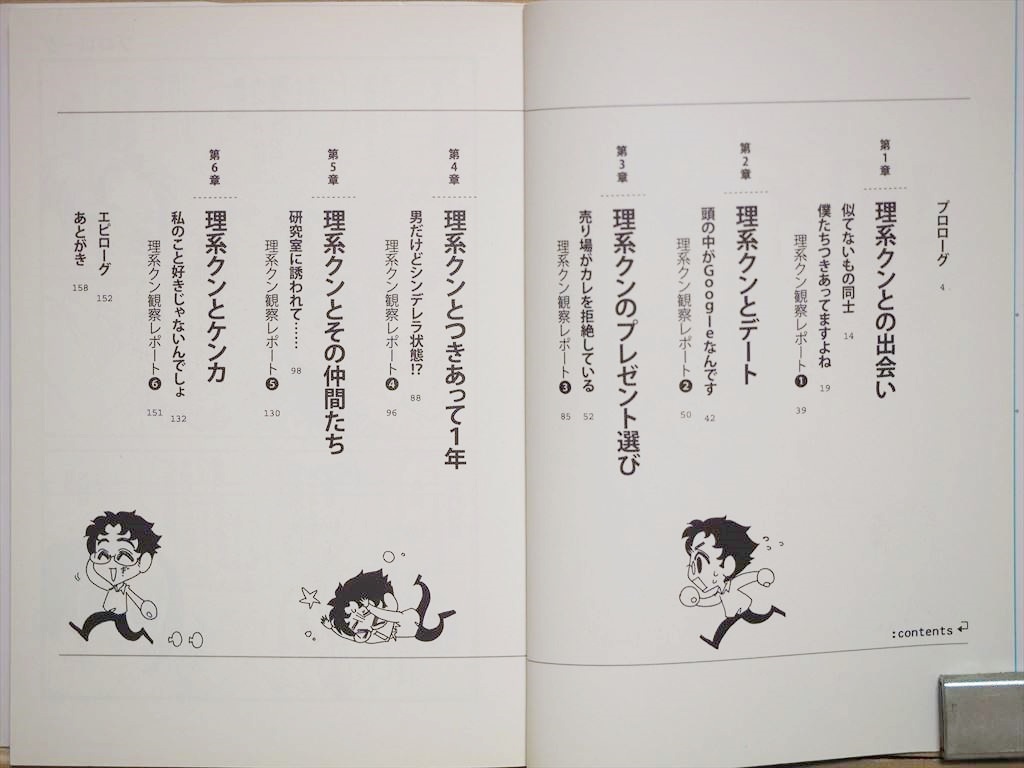 プロローグ 4
第1章
理系クンとの出会い
似てないもの同士 14
僕たちつきあってますよね 19
理系クン観察レポート❶ 39
第2章
理系クンとデート
頭の中がGoogleなんです 42
理系クン観察レポート❷ 50
第3章
理系クンのプレゼント選び
売り場がカレを拒絶している 52
理系クン観察レポート❸ 85
:contents
第4章
理系クンとつきあって1年
男だけどシンデレラ状態!? 88
理系クン観察レポート❹ 96
第5章
理系クンとその仲間たち
研究室に誘われて…… 98
理系クン観察レポート❺ 130
第6章
理系クンとケンカ
私のこと好きじゃないんでしょ 132
理系クン観察レポート❻ 151
エピローグ 152
あとがき 158